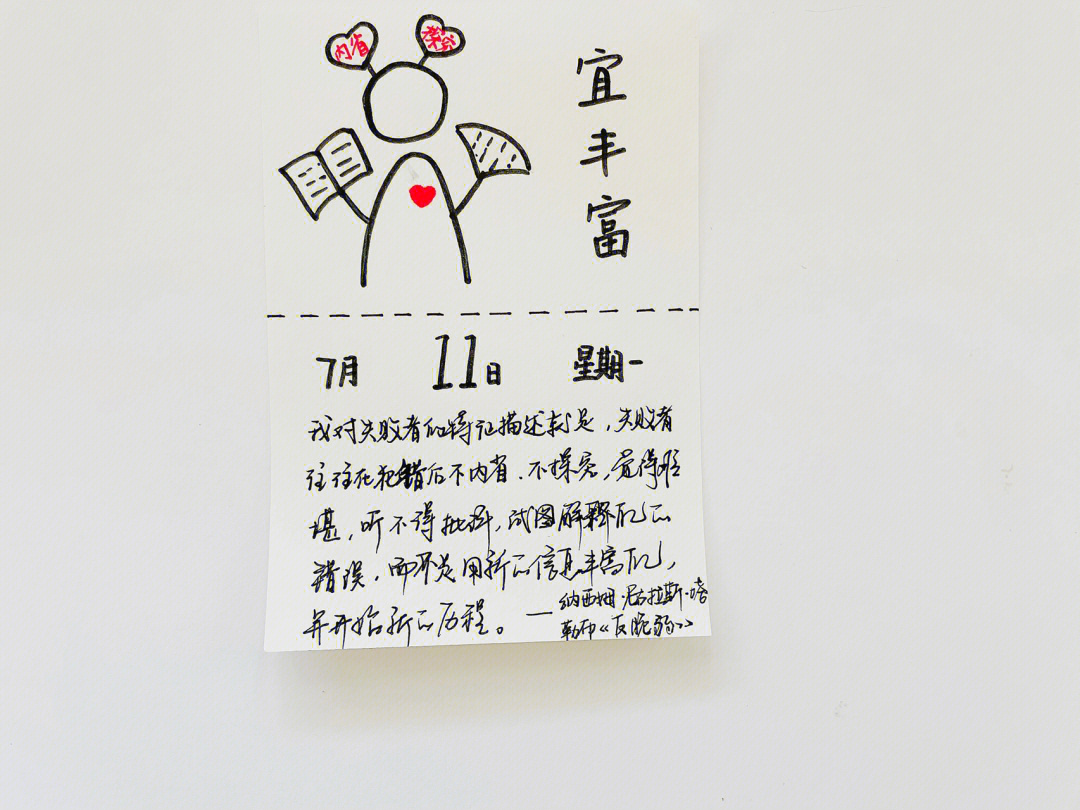 内省
探究
宜
丰
富
7月 11日 星期一
我对失败者的特征描述就是，失败者
往往在犯错后不内省、不探究，觉得难
堪，听不得批评，试图解释自己的
错误，而不是用新的信息丰富自己，
并开始新的历程。——纳西姆·尼古拉斯·塔
勒布《反脆弱》